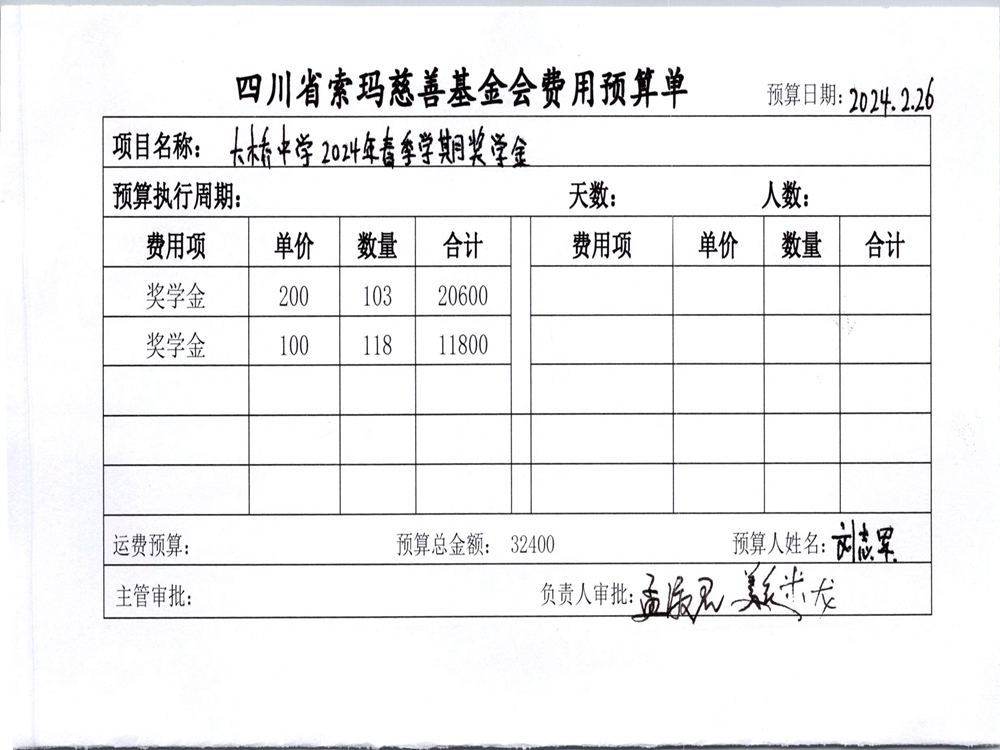 四川省索玛慈善基金会费用预算单
预算日期: 2024.2.26
项目名称: 大桥中学2024年春季学期奖学金
预算执行周期: 天数: 人数:
费用项 单价 数量 合计 费用项 单价 数量 合计
奖学金 200 103 20600
奖学金 100 118 11800
运费预算: 预算总金额: 32400 预算人姓名: 刘志军
主管审批: 负责人审批: